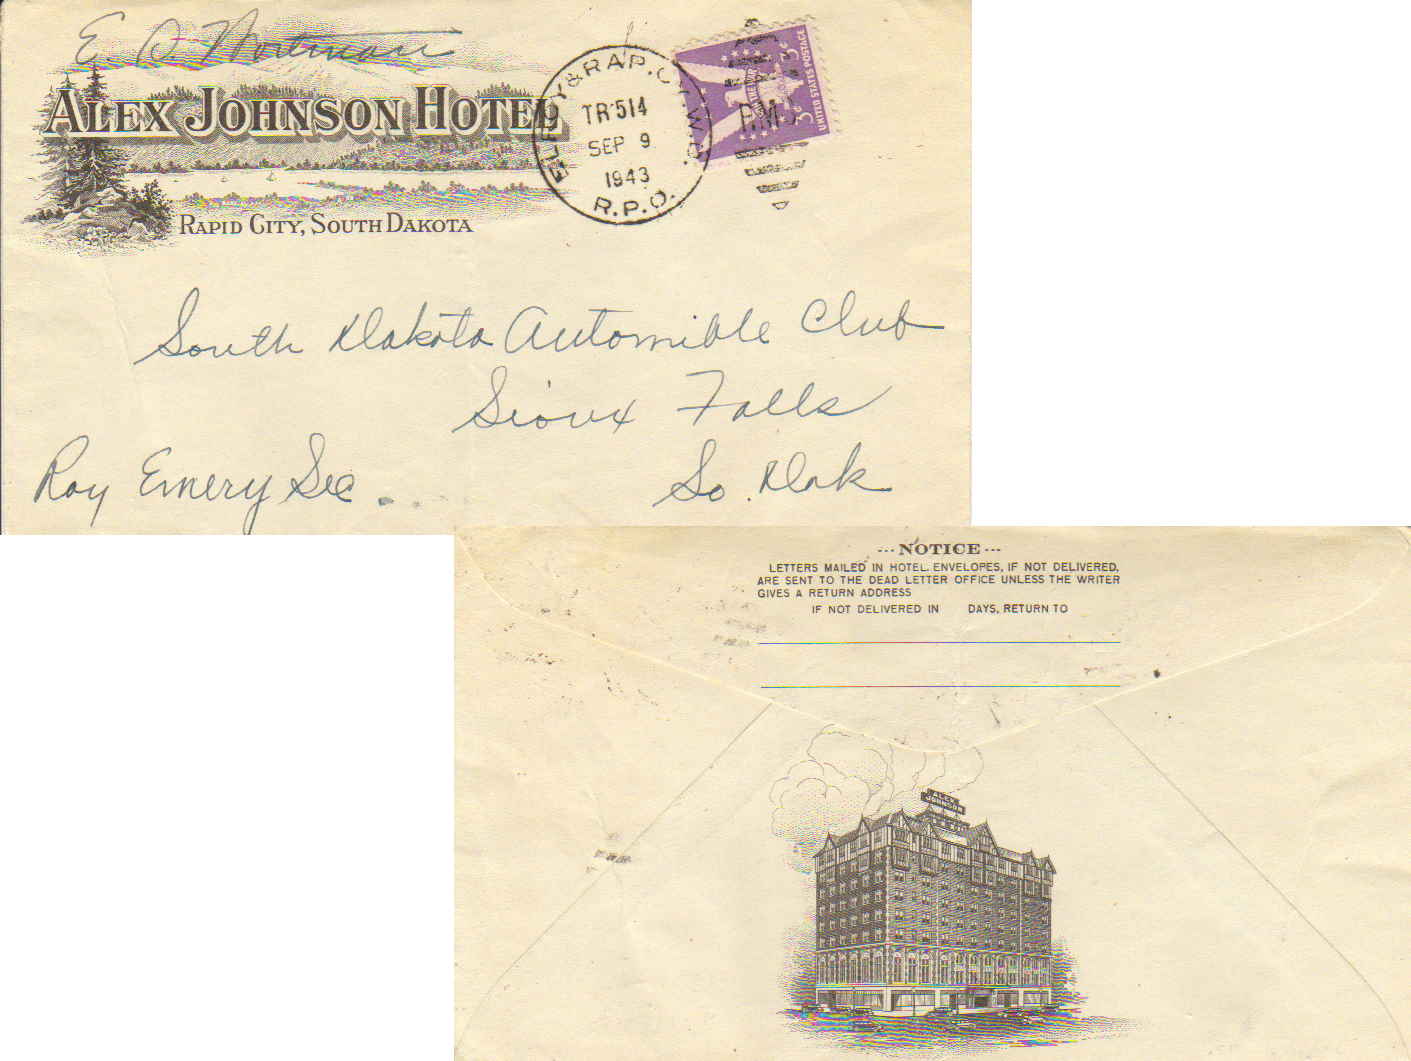 E. D. Wortman
ALEX JOHNSON HOTEL
RAPID CITY, SOUTH DAKOTA
ELROY & RAP. CY. W.D.
TR 514
SEP 9
1943
R.P.O.
3¢
UNITED STATES POSTAGE
R.M.S
South Dakota Automible Club
Sioux Falls
So. Dak
Roy Emery Sec.
--- NOTICE ---
LETTERS MAILED IN HOTEL ENVELOPES, IF NOT DELIVERED,
ARE SENT TO THE DEAD LETTER OFFICE UNLESS THE WRITER
GIVES A RETURN ADDRESS
IF NOT DELIVERED IN DAYS, RETURN TO
ALEX
JOHNSON